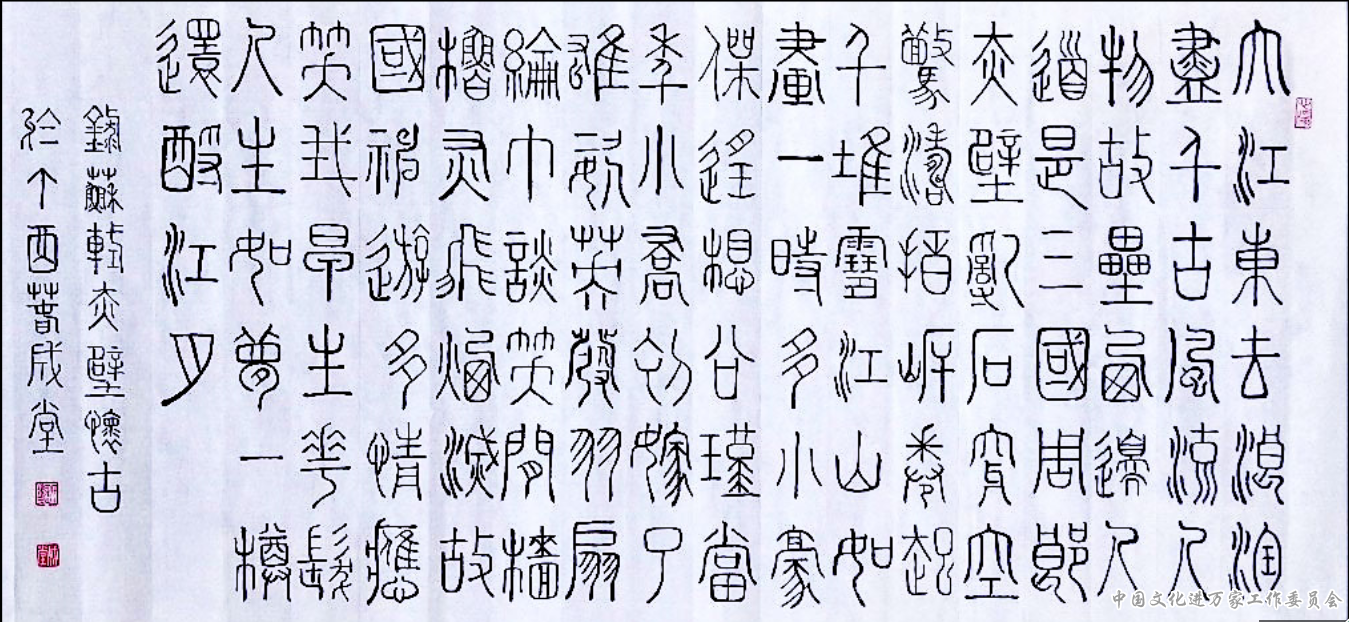 大江東去浪淘
盡千古風流人
物故壘西邊人
道是三國周郎
赤壁亂石穿空
驚濤拍岸卷起
千堆雪江山如
畫一時多小豪
傑遙想公瑾當
年小喬初嫁了
雄姿英發羽扇
綸巾談笑間檣
櫓灰飛煙滅故
國神遊多情應
笑我早生華髮
人生如夢一樽
還酹江月
錄蘇軾赤壁懷古
於丁酉春成堂
中国文化进万家工作委员会